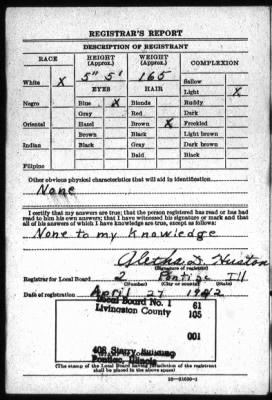 REGISTRAR'S REPORT
DESCRIPTION OF REGISTRANT
RACE HEIGHT (Approx.) WEIGHT (Approx.) COMPLEXION
White X 5" 5' 165 Sallow
EYES HAIR Light X
Negro Blue X Blonde Ruddy
Gray Red Dark
Oriental Hazel Brown X Freckled
Brown Black Light brown
Indian Black Gray Dark brown
Bald Black
Filipino
Other obvious physical characteristics that will aid in identification
None
I certify that my answers are true; that the person registered has read or has had
read to him his own answers; that I have witnessed his signature or mark and that
all of his answers of which I have knowledge are true, except as follows:
None to my Knowledge
Aletha D. Huston
(Signature of registrar)
Registrar for Local Board 2 Pontiac Ill
(Number) (City or county) (State)
Date of registration April 27 1942
Local Board No. 1 61
Livingston County 105
001
408 Sterry Building
Pontiac, Illinois
(The stamp of the Local Board having jurisdiction of the registrant
shall be placed in the above space)